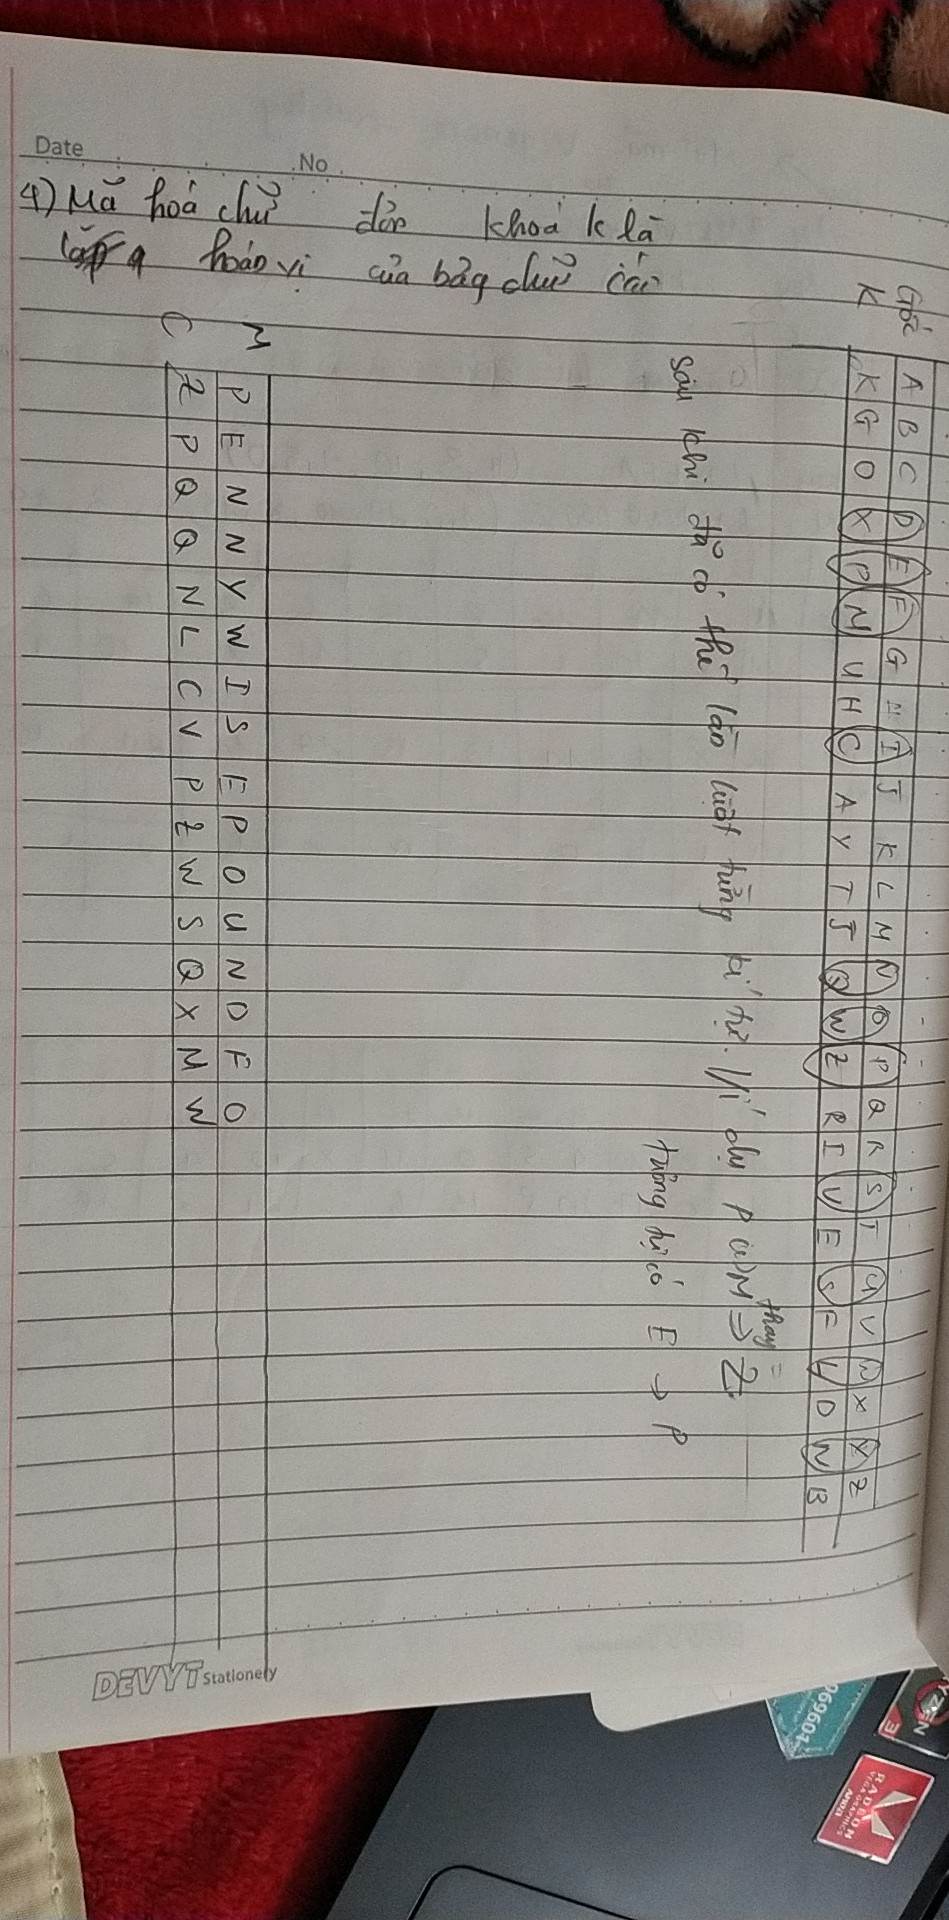 Date No.
4) Mã hoá chữ đơn khoá k là
hoán vị của bảng chữ cái
Gốc A B C D E F G H I J K L M N O P Q R S T U V W X Y Z
K K G O X P M U H C A Y T J Q W Z R I V E S F L D N B
sau khi đã có thể lần lượt từng kí tự. Ví dụ P của M thay => Z
tương tự có E → P
M P E N N Y W I S E P O U N D F O
C Z P Q Q N L C V P Z W S Q X M W
DEVYT Stationery
RYZEN
3
RADEON
VEGA GRAPHICS
AMD
069601